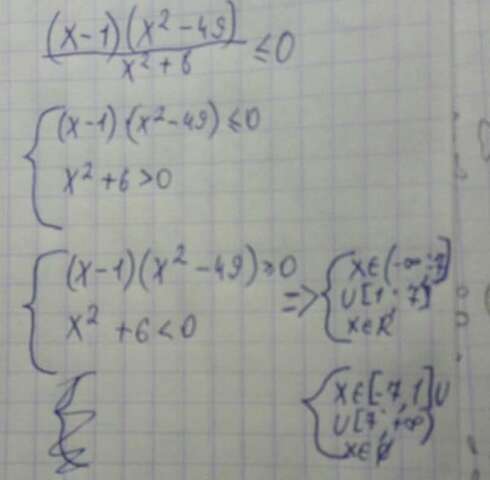 (x-1)(x²-49)
x²+6
≤0
(x-1)(x²-49)≤0
x²+6>0
(x-1)(x²-49)≥0
x²+6<0
=>
x∈(-∞;-7]
∪[1;7]
x∈R
x∈[-7,1]∪
∪[7;+∞)